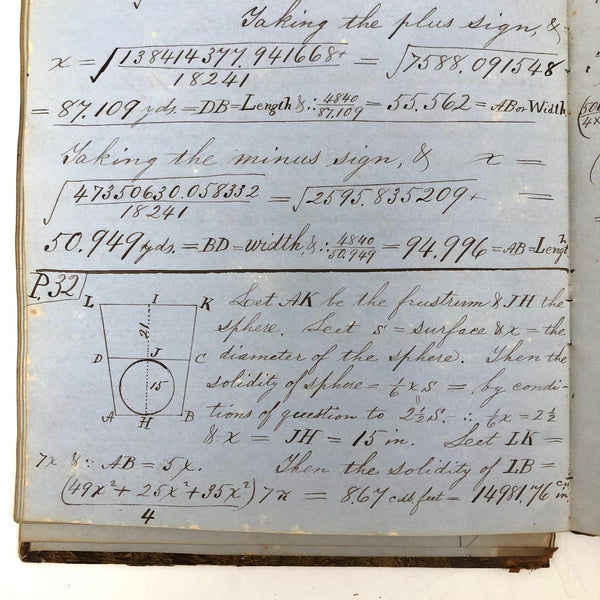 Taking the plus sign, &
x = √138414377.941668+/18241 = √7588.091548
= 87.109 yds. = DB = Length & ∴ 4840/87.109 = 55.562 = AB or Width
Taking the minus sign, & x =
√47350630.058332/18241 = √2595.835209+ =
50.949 yds. = BD = width, & ∴ 4840/50.949 = 94.996 = AB = Length
P.32
L I K
21
D J C
15
A H B
Let AK be the frustrum & JH the
sphere. Let s = surface & x = the
diameter of the sphere. Then the
solidity of sphere = 1/6 x s = by condi-
tions of question to 2 1/2 s. ∴ 1/6 x = 2 1/2
& x = JH = 15 in. Let LK =
7x & ∵ AB = 5x. Then the solidity of LB =
(49x² + 25x² + 35x²/4) 7x = 8.67 cub. feet = 14981.76 c. in